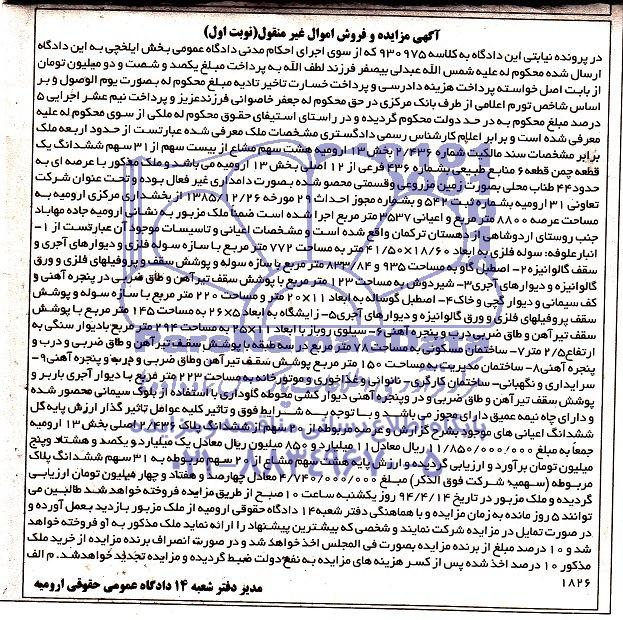 آگهی مزایده و فروش اموال غیر منقول(نوبت اول)
در پرونده نیابتی این دادگاه به کلاسه ۹۳۰۹۷۵ که از سوی اجرای احکام مدنی دادگاه عمومی بخش ایلخچی به این دادگاه
ارسال شده محکوم له علیه شمس الله عبدلی بیصفر فرزند لطف الله به پرداخت مبلغ یکصد و شصت و دو میلیون تومان
از بابت اصل خواسته پرداخت هزینه دادرسی و پرداخت خسارت تاخیر تادیه مبلغ محکوم له بصورت یوم الوصول و بر
اساس شاخص تورم اعلامی از طرف بانک مرکزی در حق محکوم له جعفر خاصوانی فرزندعزیز و پرداخت نیم عشر اجرایی ۵
درصد مبلغ محکوم به در حد دولت محکوم گردیده و در راستای استیفای حقوق محکوم له ملکی از سوی محکوم له علیه
معرفی شده است و برابر اعلام کارشناس رسمی دادگستری مشخصات ملک معرفی شده عبارتست از حدود اربعه ملک
برابر مشخصات سند مالکیت شماره ۲/۴۳۶ بخش ۱۳ ارومیه هشت سهم مشاع از بیست سهم از ۳۱ سهم ششدانگ یک
قطعه چمن قطعه ۶ منابع طبیعی بشماره ۴۳۶ فرعی از ۱۲ اصلی بخش ۱۳ ارومیه می باشد و ملک مذکور با عرصه ای به
حدود۴۴ طناب محلی بصورت زمین مزروعی وقسمتی محصو شده بصورت دامداری غیر فعال بوده و تحت عنوان شرکت
تعاونی ۳۱ ارومیه بشماره ثبت ۵۴۲ و بشماره مجوز احداث ۲۹ مورخه ۱۳۸۵/۱۲/۲۶ از بخشداری مرکزی ارومیه به
مساحت عرصه ۸۸۰۰ متر مربع و اعیانی ۲۵۳۷متر مربع اجرا شده است ضمناً ملک مزبور به نشانی ارومیه جاده مهاباد
جنب روستای اردوشاهی از دهستان ترکمان واقع شده است و مشخصات اعیانی و تاسیسات موجود آن عبارتست از ۱-
انبارعلوفه: سوله فلزی به ابعاد ۱۸/۶۰×۴۱/۵۰ متر به مساحت ۷۷۲ متر مربع با سازه سوله فلزی و دیوارهای آجری و
سقف گالوانیزه۲- اصطبل گاو به مساحت ۹۳۵ و ۸۳۳/۸۴ متر مربع با سازه سوله و پوشش سقف و پروفیلهای فلزی و ورق
گالوانیزه و دیوارهای آجری۳- شیردوش به مساحت ۱۲۳ متر مربع با پوشش سقف تیرآهن و طاق ضربی در پنجره آهنی و
کف سیمانی و دیوار گچی و خاک۴- اصطبل گوساله به ابعاد ۱۱×۲۰ متر و مساحت ۲۲۰ متر مربع با سازه سوله و پوشش
سقف پروفیلهای فلزی و ورق گالوانیزه و دیوارهای آجری۵- زایشگاه به ابعاد ۵×۲۶ به مساحت ۱۴۵ متر مربع با پوشش
سقف تیرآهن و طاق ضربی درب و پنجره آهنی۶- سیلوی روباز با ابعاد ۱۱×۲۵ به مساحت ۲۹۴ متر مربع بادیوار سنگی به
ارتفاع۲/۵ متر۷- ساختمان مسکونی به مساحت ۷۸ متر مربع در سه طبقه با پوشش سقف تیر آهن و طاق ضربی و درب و
پنجره آهنی۸- ساختمان مدیریت به مساحت ۱۵۰ متر مربع پوشش سقف تیر آهن وطاق ضربی و درب و پنجره آهنی۹-
سرایداری و نگهبانی- ساختمان کارگری- نانوایی و غذاخوری و موتورخانه به مساحت ۲۲۳ متر مربع با دیوار آجری باربر و
پوشش سقف تیر آهن و طاق ضربی و در و پنجره آهنی دیوار کشی محوطه گاوداری با استفاده از بلوک سیمانی محصور شده
و دارای چاه نیمه عمیق دارای مجوز می باشد و با توجه به شرایط فوق و تاثیر کلیه عوامل تاثیر گذار ارزش پایه کل
ششدانگ اعیانی های موجود بشرح گزارش و عرصه مربوطه از ۲۰ سهم از ششدانگ پلاک ۲/۴۳۶ اصلی بخش ۱۳ ارومیه
جمعا به مبلغ ۱۱/۸۵۰/۰۰۰/۰۰۰ ریال معادل ۱۱ میلیارد و ۸۵۰ میلیون ریال معادل یک میلیارد و یکصد و هشتاد وپنج
میلیون تومان برآورد و ارزیابی گردیده و ارزش پایه هشت سهم مشاع از ۲۰ سهم مربوطه به ۳۱ سهم ششدانگ پلاک
مربوطه (سهمیه شرکت فوق الذکر) مبلغ ۴/۷۴۰/۰۰۰/۰۰۰ معادل چهارصد و هفتاد و چهار میلیون تومان ارزیابی
گردیده و ملک مزبور در تاریخ ۹۴/۴/۱۴ روز یکشنبه ساعت ۱۰ صبح از طریق مزایده فروخته خواهد شد طالبین می
توانند ۵ روز مانده به زمان مزایده و با هماهنگی دفتر شعبه۱۴ دادگاه حقوقی ارومیه از ملک مزبور بازدید بعمل آورده و
در صورت تمایل در مزایده شرکت نمایند و شخصی که بیشترین پیشنهاد را ارائه نماید ملک مذکور به او فروخته خواهد
شد و ۱۰ درصد مبلغ از برنده مزایده بصورت فی المجلس اخذ خواهد شد و در صورت انصراف برنده مزایده از خرید ملک
مذکور ۱۰ درصد اخذ شده پس از کسر هزینه های مزایده به نفع دولت ضبط گردیده و مزایده تجدید خواهد شد. م الف
۱۸۲۶
مدیر دفتر شعبه ۱۴ دادگاه عمومی حقوقی ارومیه